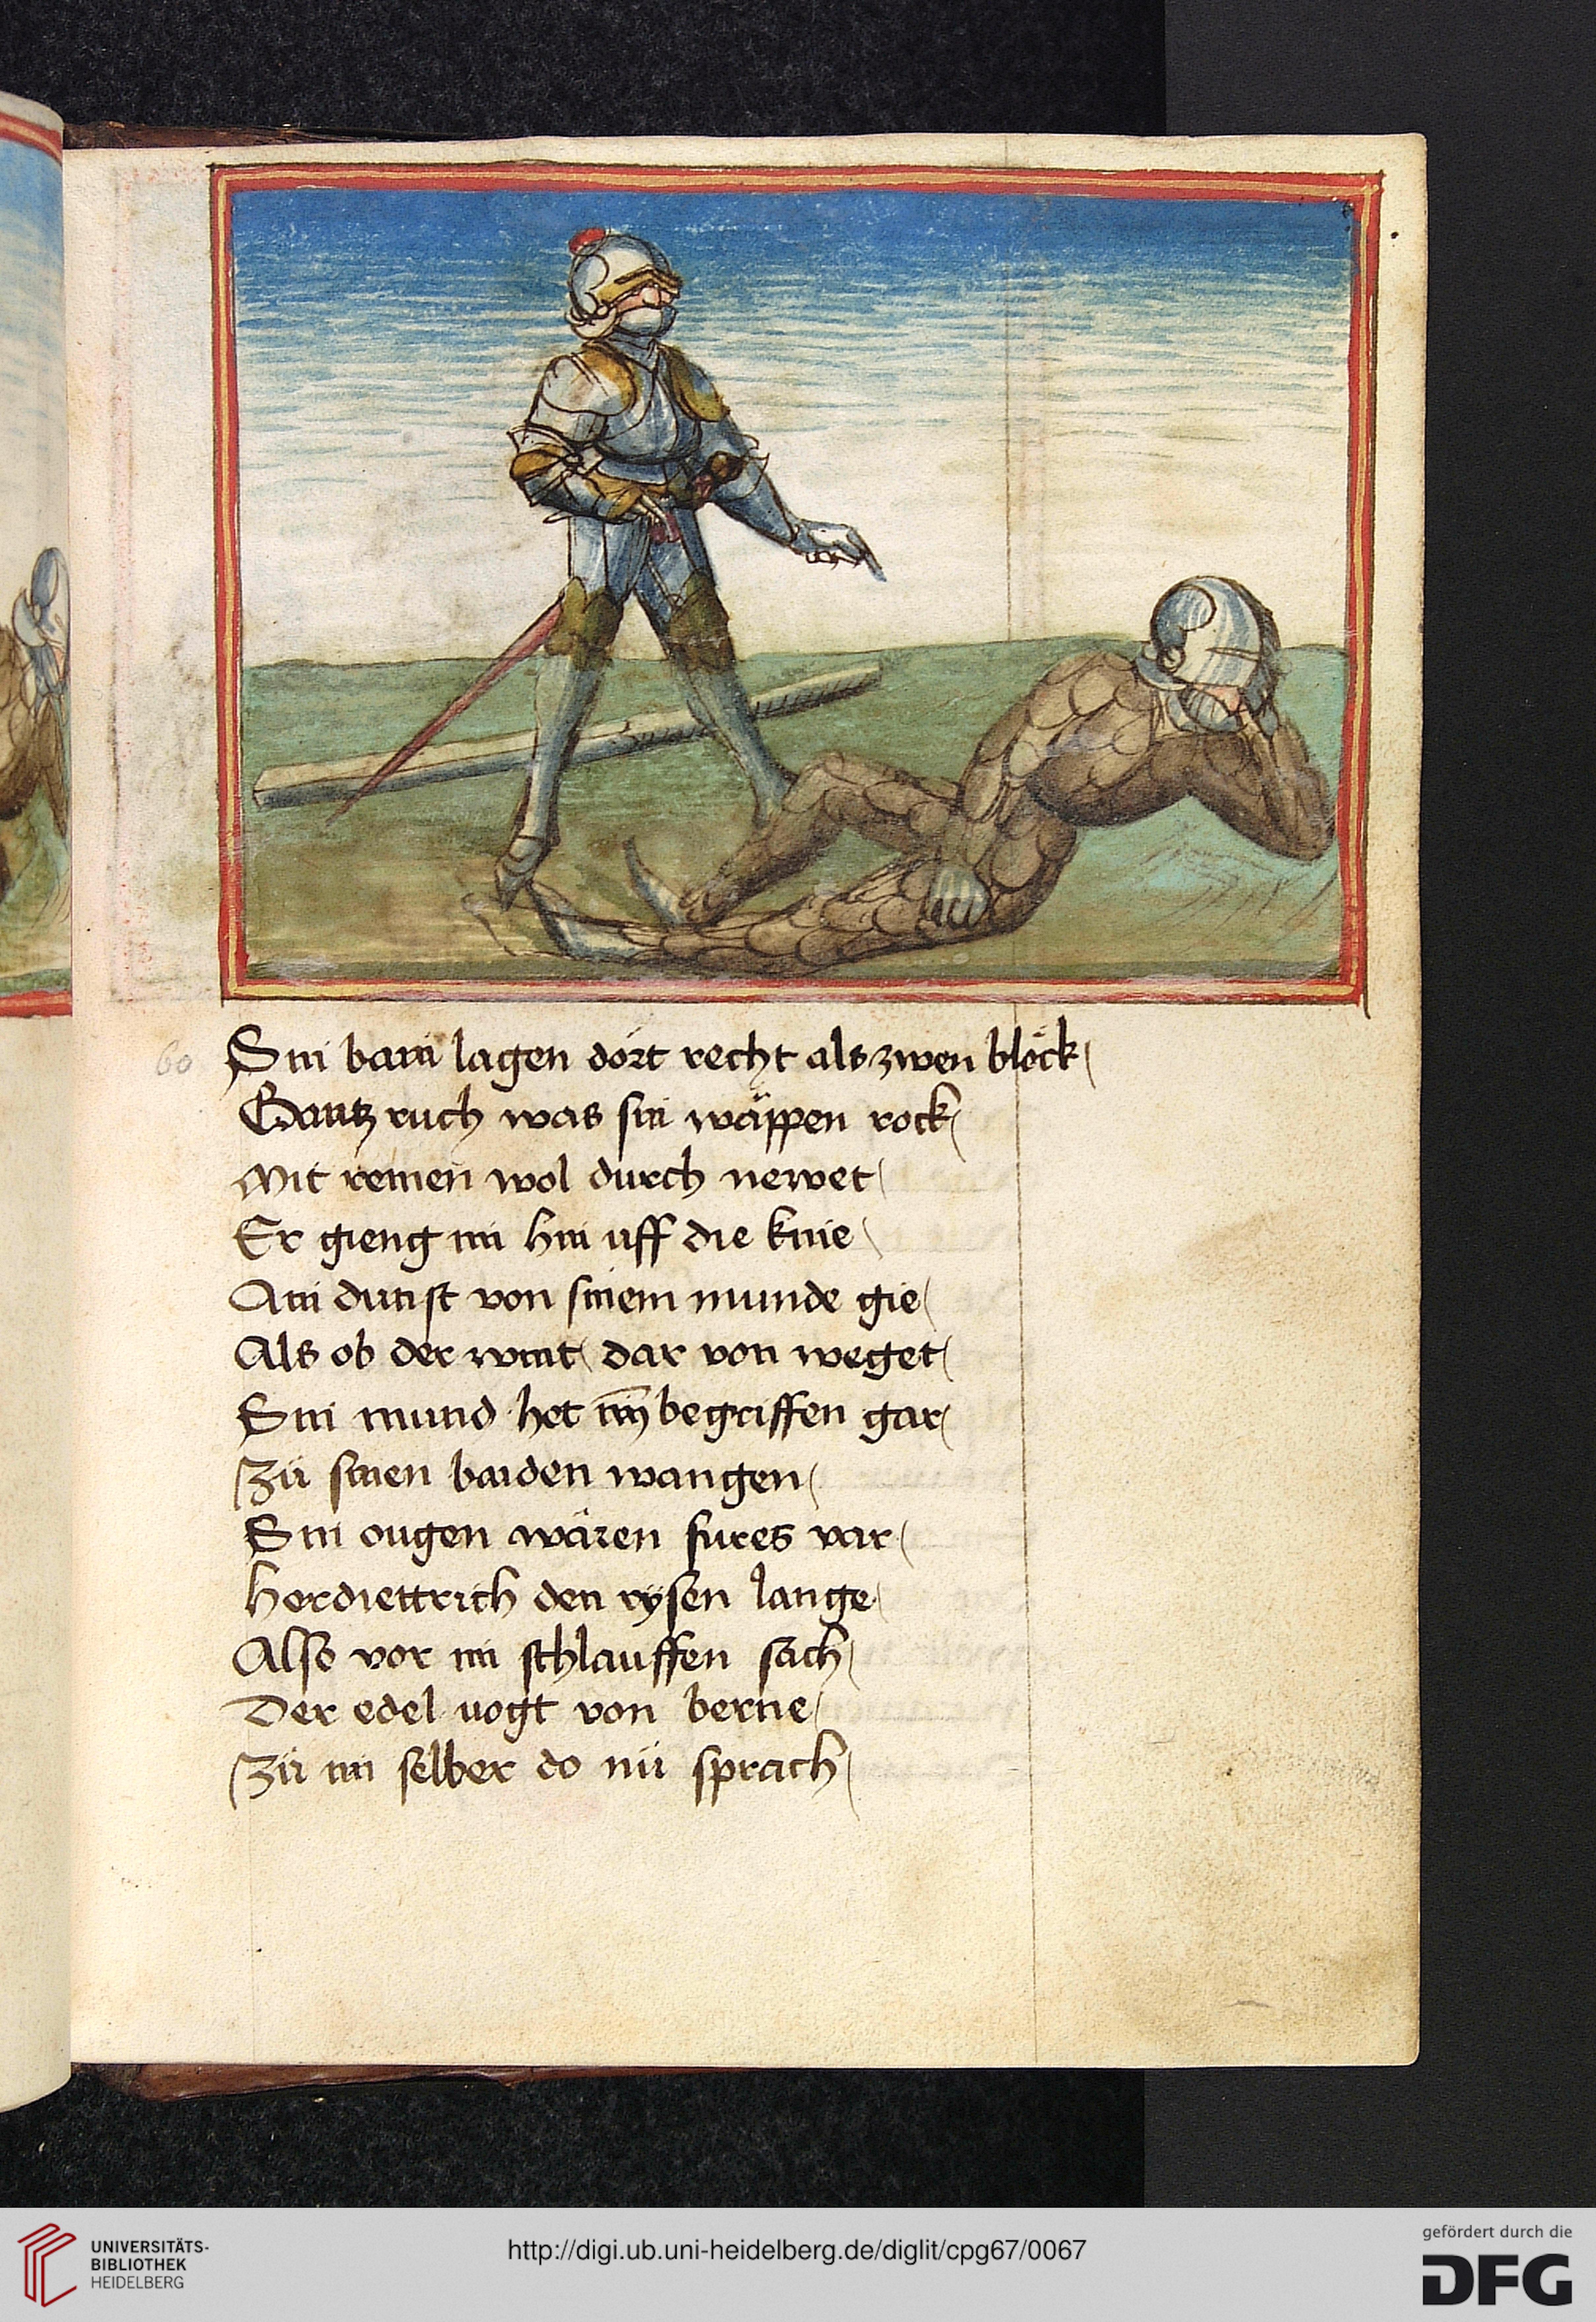 60
Sin bain lagen dort recht als zwen blöck
Gantz ruch was sin wäppen rock
Mit remen wol durch newet
Er gieng im hin uff die knie
Ain dunst von sinem munde gie
Als ob der wint dar von weget
Sin mund het im begriffen gar
Zü sinen baiden wangen
Sin ougen wären fures var
Herdiettrich den rysen lange
Also vor im schlauffen sach
Der edel vogt von berne
Zü im selber do nü sprach
UNIVERSITÄTS-
BIBLIOTHEK
HEIDELBERG
http://digi.ub.uni-heidelberg.de/diglit/cpg67/0067
gefördert durch die
DFG